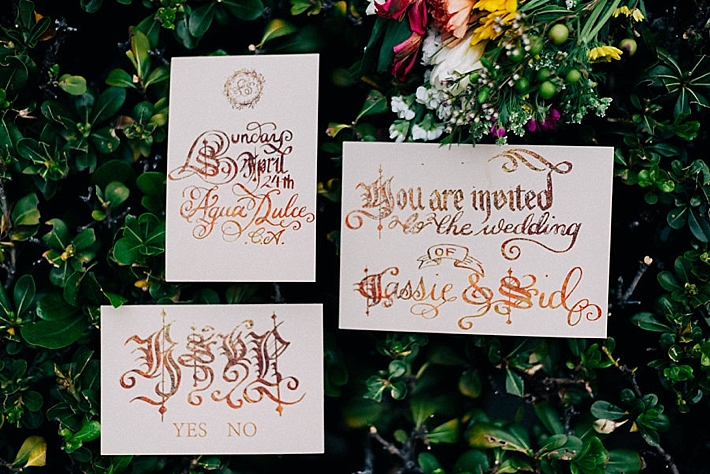 Sunday
April
24th
Agua Dulce
C.A.
You are invited
to the wedding
OF
Cassie & Sid
RSVP
YES NO